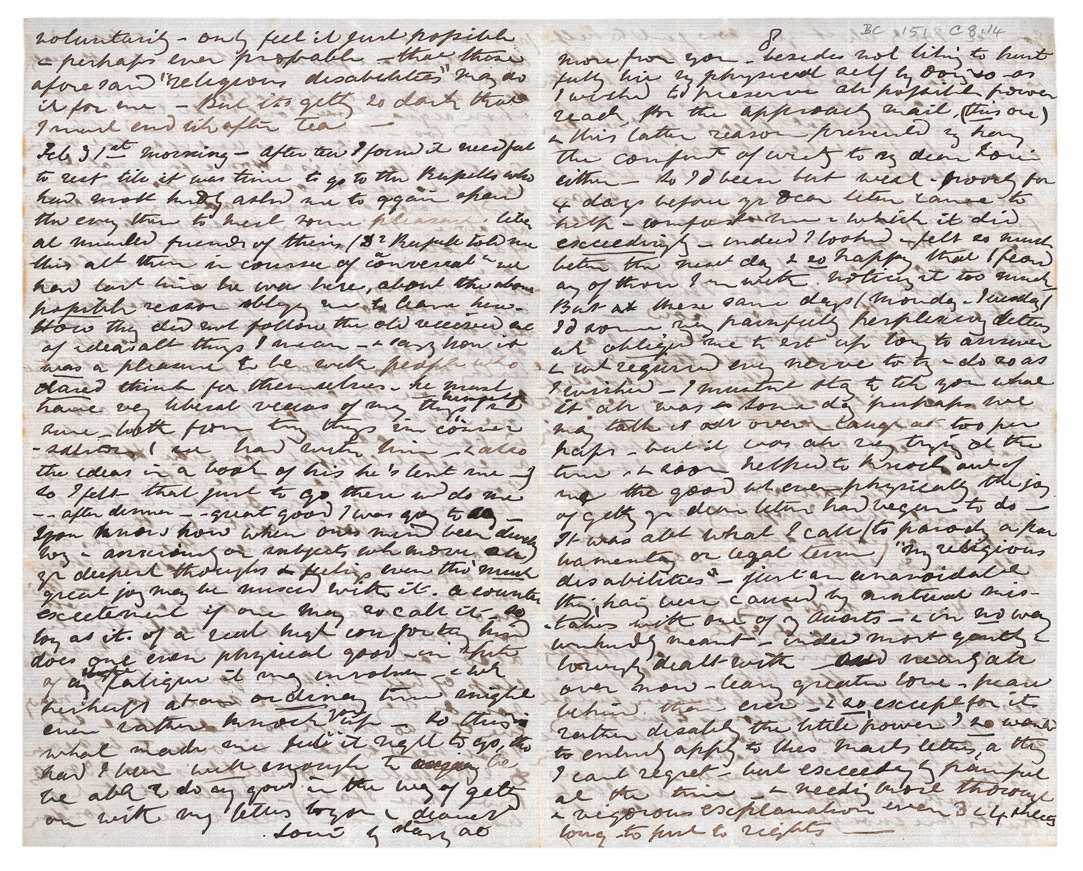 voluntarily - only feel it just possible
& perhaps even probable - that those
aforesaid "religious disabilities" may do
it for me - But it's getting so dark that
I must end till after tea -
Feb 31st morning - After tea I found it needful
to rest till it was time to go to the Russells who
had most kindly asked me to again spend
the eveg there to meet some pleasant like
at minded friends of theirs (Dr Russell told me
this all then in course of conversatn we
had last time he was here, about the above
possible reason obligg me to leave here.
How they did not follow the old received
of ideas all things I mean - & sayg how it
was a pleasure to be with people who
dared think for themselves - he must
have very liberal views of many things himself I'm
sure, both from tiny things in conver
-sation I've had with him, & also
the ideas in a book of his he's lent me -)
so I felt that just to go there wd do me
-- after dinner -- great good I was gog to say
You know how when one's mind been dwelg
long - answering on subjects wh move all
yr deepest thoughts & feelings even tho' much
great joy may be mixed with it. a counter
excitement if one may so call it - so
long as it's of a real high comfortg kind
does one even physical good - in spite
of any fatigue it may involve - & wh
perhaps at an ordinary time might
even rather knock one up - So this is
what made me feel it right to go, tho
had I been well enough to
be able to do any good in the way of gettg
on with my letters to you & dearest
Loui - by dayg at
8
BC 151 C8.14
more from you - besides not liking to hurt
fully live my physical self by doing so - as
I wished to preserve all possible power
reach for the approachg mail, (this one)
& this latter reason prevented my havg
the comfort of writg to my dear Loui
either - So I'd been but well - poorly for
4 days before yr dear letter came to
help - comfort me - & which it did
exceedingly - indeed I looked & felt so much
better the next day & so happy that I fear
any of those I'm with noticing it too much
But at these same days (Monday - Tuesday)
I'd some very painfully perplexing letters
wh obliged me to sit up long to answer
& wh required every nerve to try & do so as
I wished - I mustn't stay to tell you what
it all was - Some day perhaps we
may talk it all over & laugh at too per
haps - but it was all very trying at the
time, & soon helped to knock out of
me the good wh even physically the joy
of gettg yr dear letter had begun to do -
It was abt what I call (to parody a par
liamentary or legal term) "my religious
disabilities" - just an unavoidable
thing havg been caused by mutual mis-
takes with one of my Aunts - & in no way
unkindly meant - indeed most gently &
lovingly dealt with - and nearly all
over now - leavg greater love & peace
behind than ever - & so, except for its
rather disablg the little power I so wanted
to entirely apply to this mail's letters, a thg
I can't regret - but exceedingly painful
at the time - & needing more thorough
& vigorous explanation even 3 & 4 sheets
long - to put to rights -